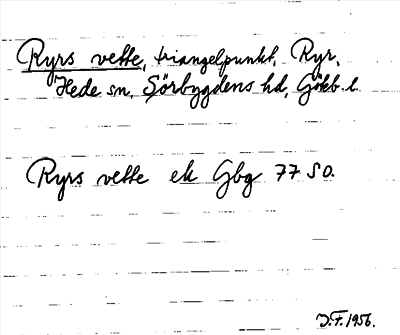 Ryrs vette, triangelpunkt, Ryr,
Hede sn, Sörbygdens hd, Götkb. l.
Ryrs vette ek Gbg 77 SO.
J.F. 1956.